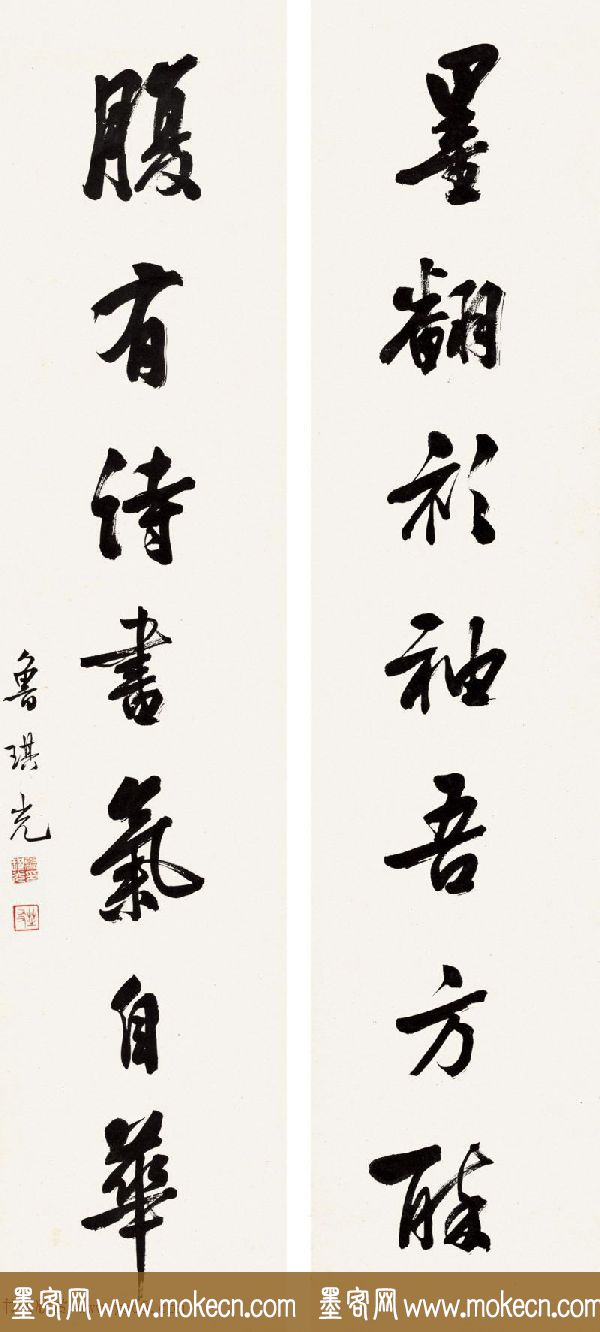 墨翻衫袖吾方醉
腹有诗書氣自華
魯琪光
墨客网www.mokecn.com
墨客网www.mokecn.com